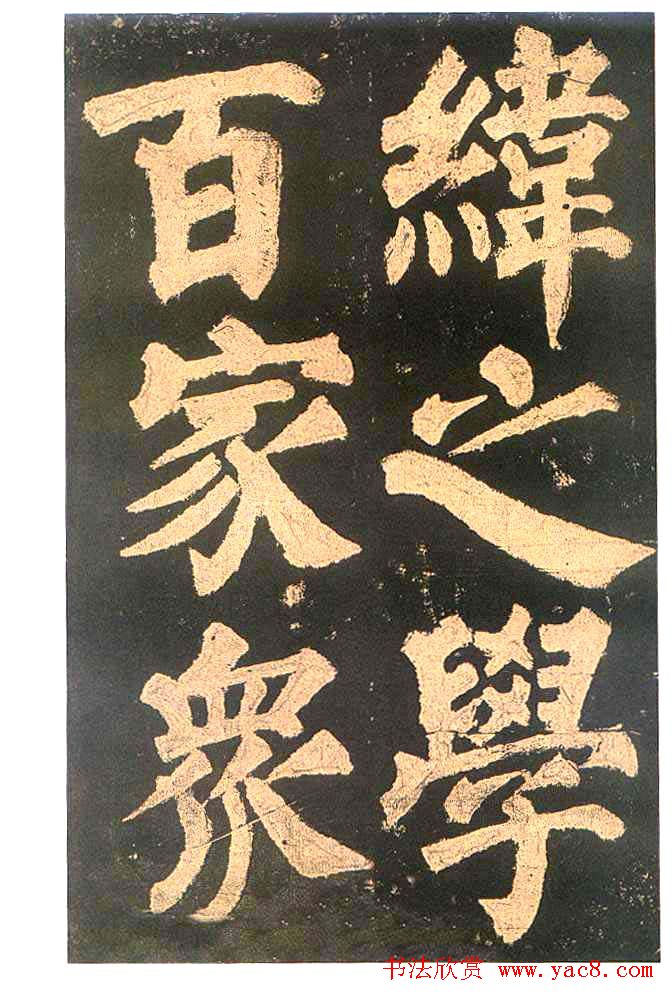 緯之學
百家眾
书法欣赏 www.yac8.com